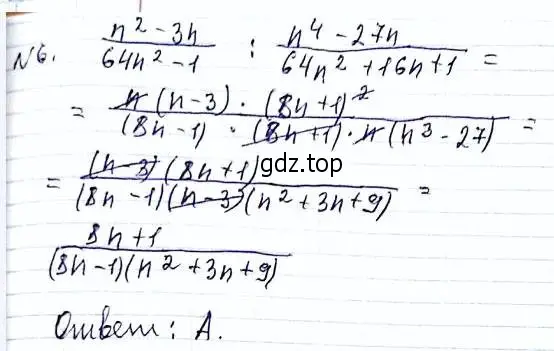 N6. (n² - 3n)/(64n² - 1) : (n⁴ - 27n)/(64n² + 16n + 1) =
= (n(n-3) · (8n+1)²)/((8n-1) · (8n+1) · n(n³ - 27)) =
= ((n-3)(8n+1))/((8n-1)(n-3)(n² + 3n + 9)) =
(8n+1)/((8n-1)(n² + 3n + 9))
gdz.top
Ответ: А.